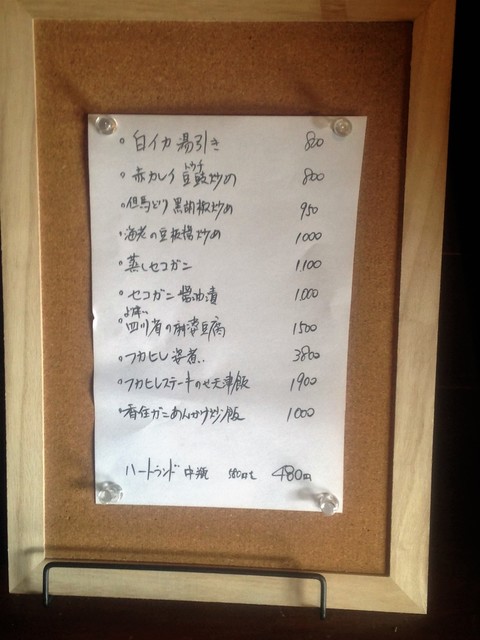 白イカ 湯引き 800
トウチ
赤カレイ 豆豉炒め 800
但馬どり 黒胡椒炒め 950
海老の豆板醤炒め 1000
蒸しセコガニ 1,100
セコガニ 醤油漬 1,000
四川省の麻婆豆腐 1500
フカヒレ姿煮 3800
フカヒレステーキのせ天津飯 1900
香住ガニあんかけ炒飯 1000
ハートランド 中瓶 580円を 480円